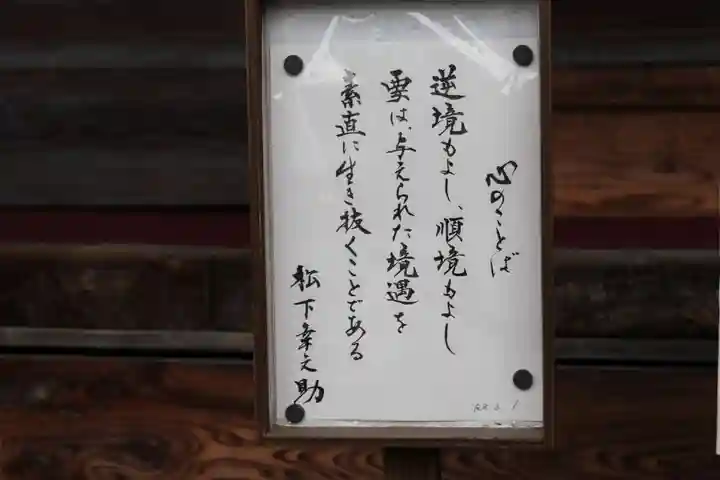 心のことば
逆境もよし、順境もよし
要は、与えられた境遇を
素直に生き抜くことである
松下幸之助